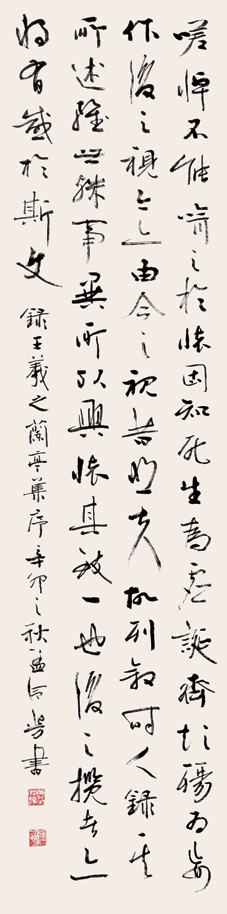 嗟悼不能喻之於懷固知死生為虛誕齊彭殤為妄
作後之視今亦由今之視昔悲夫故列敘時人錄其
所述雖世殊事異所以興懷其致一也後之攬者亦
將有感於斯文 錄王羲之蘭亭集序辛卯之秋孟書